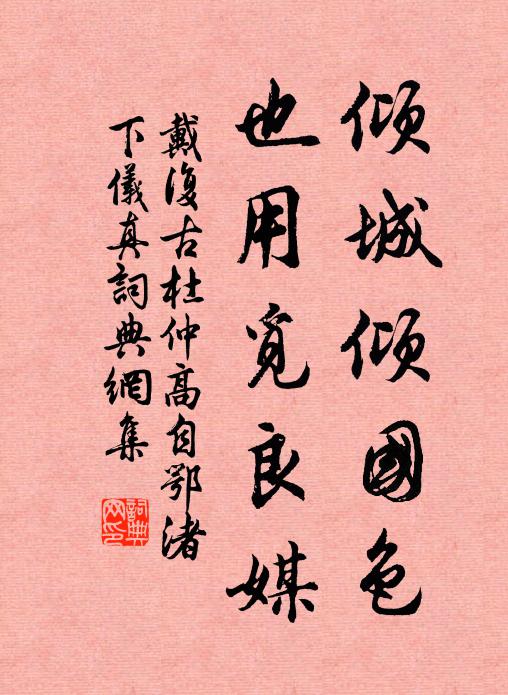 傾城傾國色
也用覓良媒
戴復古杜仲高自鄂渚
下儀真詞典網集
詞典
网印